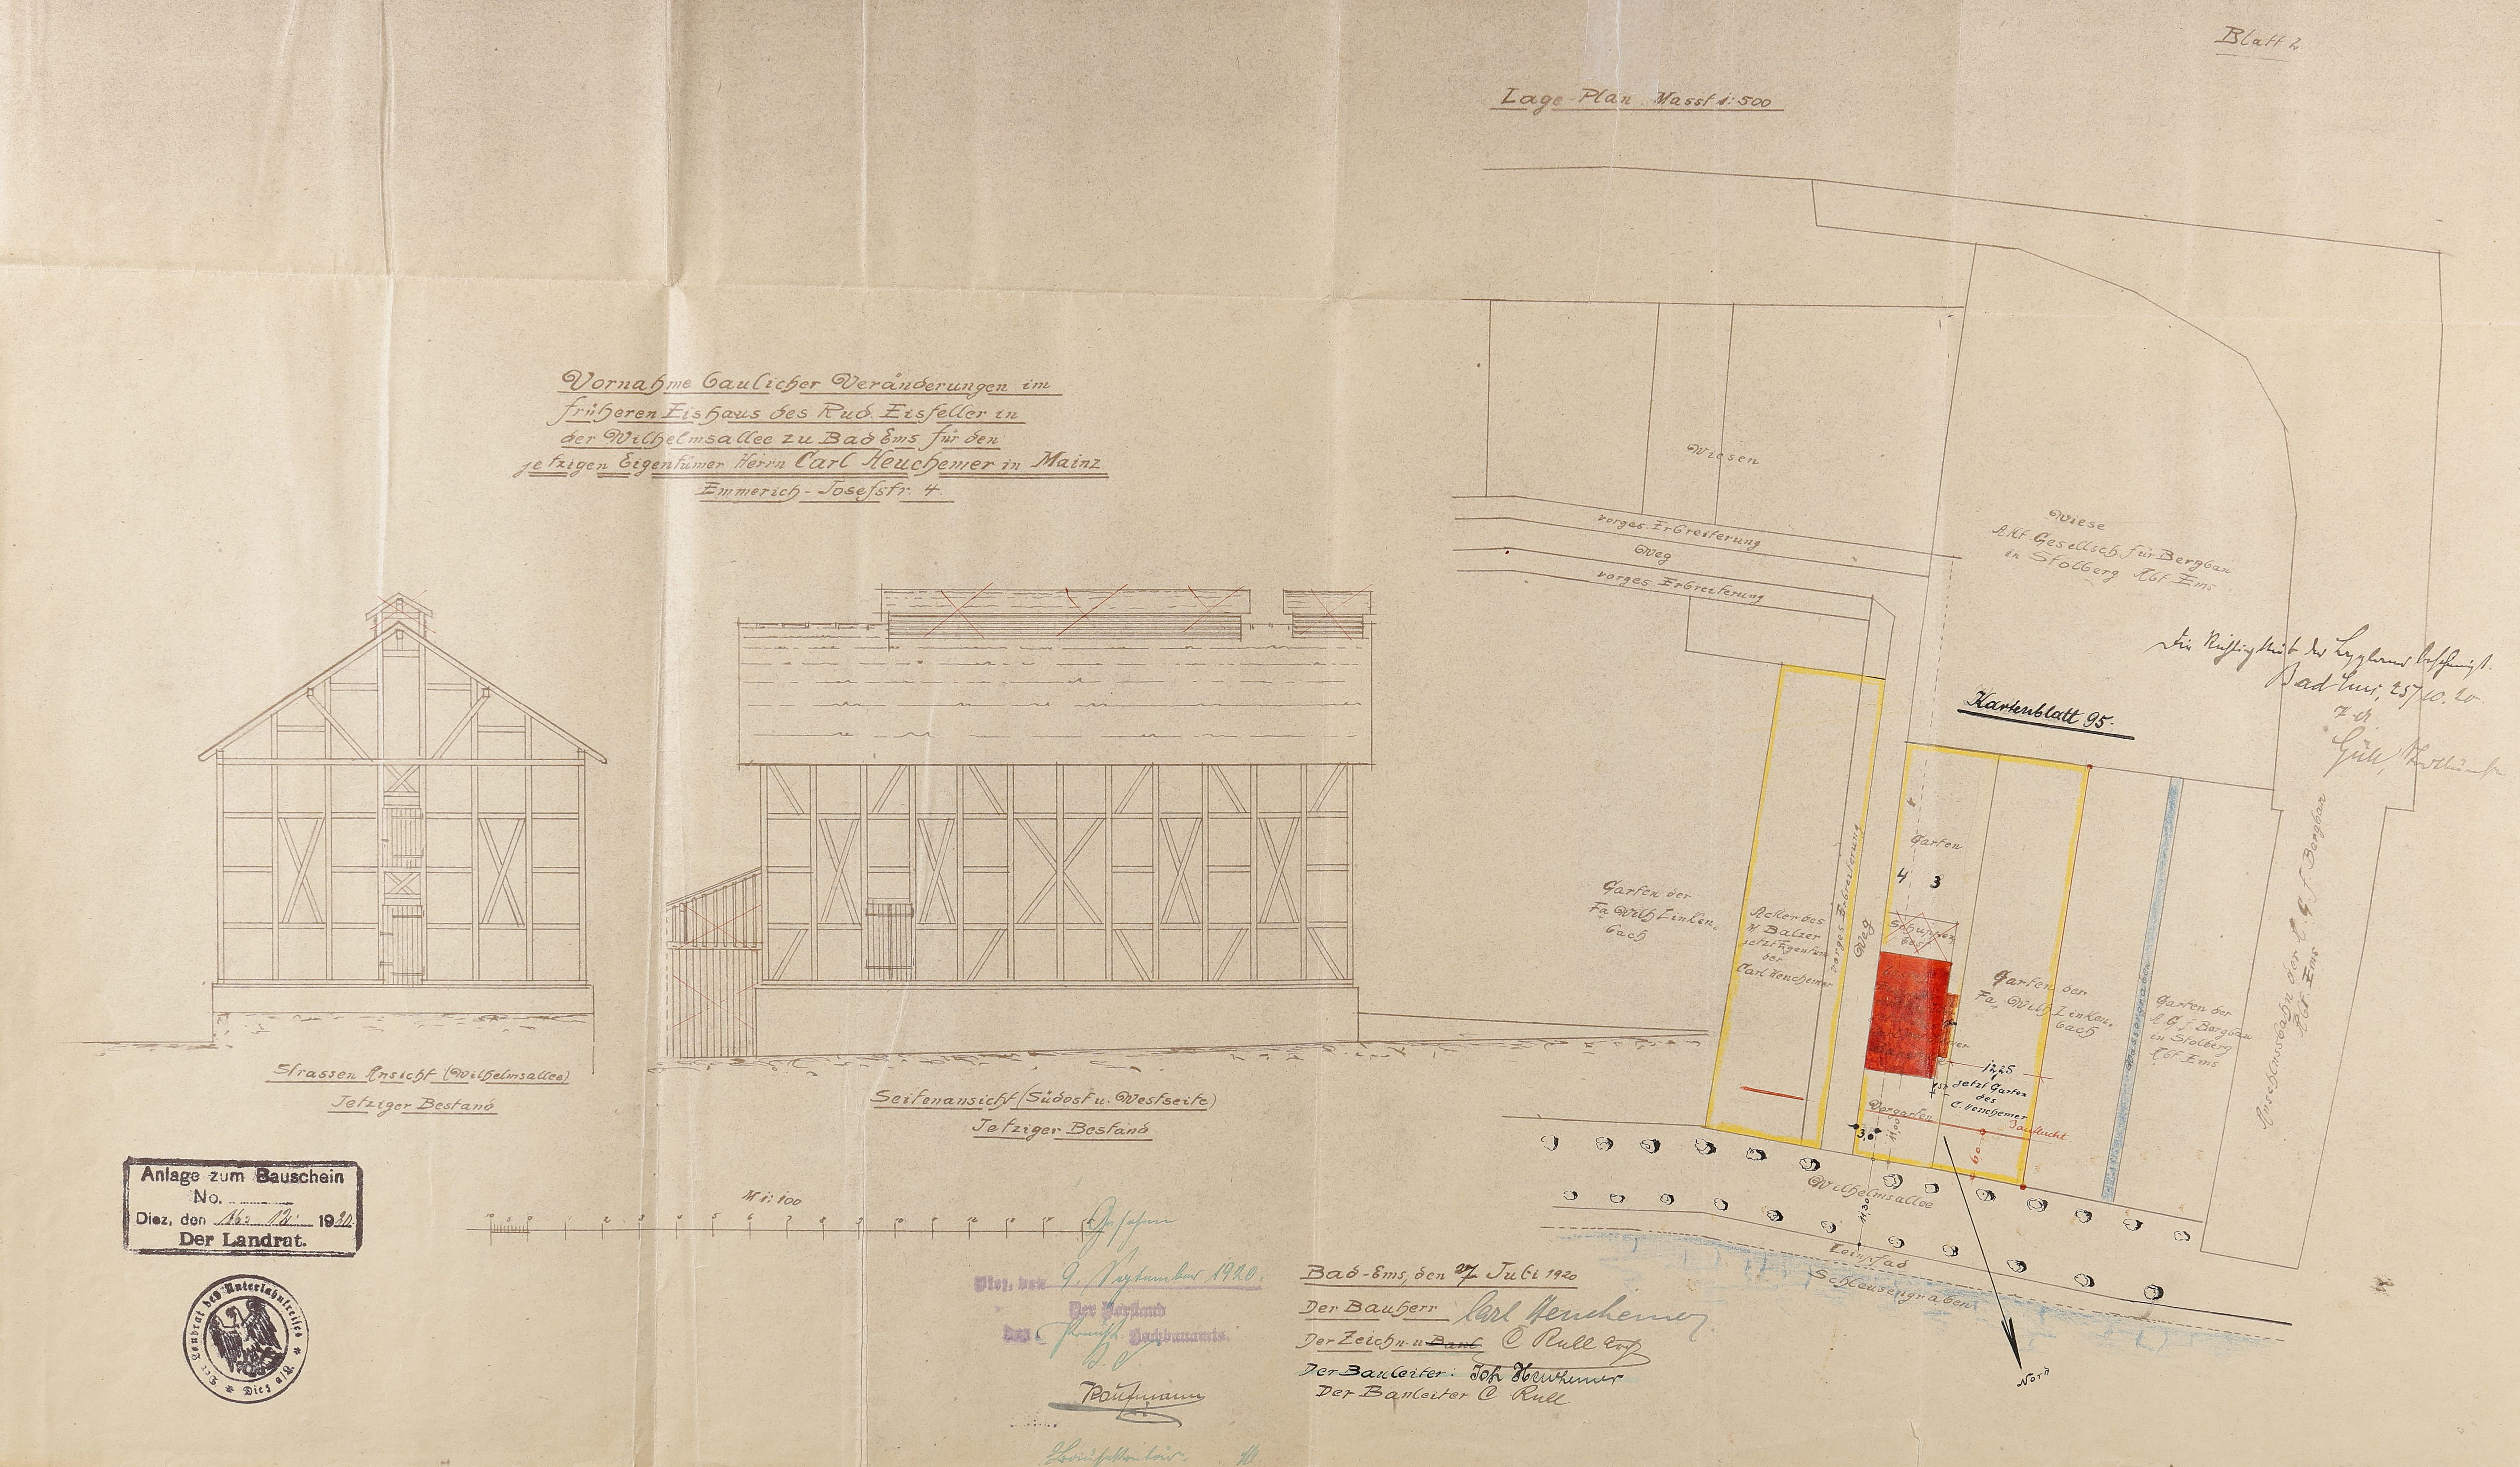 Blatt 2.
Lage-Plan. Masst 1:500
Vornahme baulicher Veränderungen im
früheren Eishaus des Rud. Eisfeller in
der Wilhelmsallee zu Bad Ems für den
jetzigen Eigentümer Herrn Carl Heuchemer in Mainz
Emmerich-Josefstr. 4.
Wiesen
vorges. Erbreiterung
Weg
vorges. Erbreiterung
Wiese
Akt. Gesellsch. für Bergbau
in Stolberg Abt Ems
Die Richtigkeit der bescheinigt.
Bad Ems, 25/10.20
Kartenblatt 95.
Garten
4 3
Garten der
Fa Wilh Linken.
bach
Acker des
M Balzer
jetzt Eigentum
der
Carl Heuchemer
vorges Erbreiterung
Weg
Schuppen
Garten der
Fa. Wilh Linken.
bach
Wassergraben
Garten der
A. G. f Bergbau
in Stolberg
Abt Ems
Anschlussbahn der A. G. f. Bergbau
Abt. Ems
12,25
jetzt Garten
des
C. Heuchemer
Vorgarten
Bauflucht
3,0
11,00
6.0
Wilhelmsallee
11,50
Leinpfad
Schleusengraben
Nord
Strassen Ansicht (Wilhelmsallee)
Jetziger Bestand
Seitenansicht (Südost u. Westseite)
Jetziger Bestand
Anlage zum Bauschein
No.
Diez, den 16. 12. 1920.
Der Landrat.
Der Landrat des Unterlahnkreises * Diez a/L. *
M 1:100
10 5 0 1 2 3 4 5 6 7 8 9 10 11 12
Gesehen
Diez, den 9. September 1920.
Der Vorstand
des Preuß. Hochbauamts.
Kaufmann
Bausekretär.
Bad-Ems, den 27 Juli 1920
Der Bauherr Carl Heuchemer
Der Zeichn. u C Rull
Der Bauleiter: Joh Heuchemer
Der Bauleiter C Rull